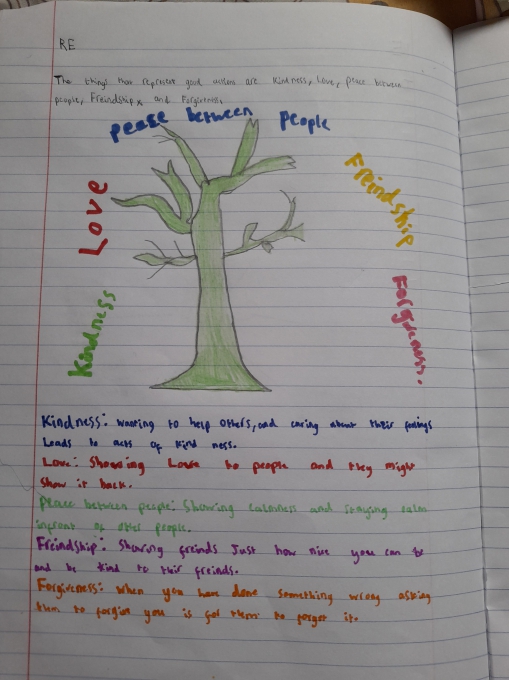 RE
The things that represent good wisdom are kindness, Love, peace between
people, Freindship, and Forgiveness.
pease between people
Love
Freindship
Kindness
Forgiveness.
Kindness: wanting to help others, and caring about their feelings
Leads to acts of kind ness.
Love: Showing Love to people and they might
show it back.
Peace between people: Showing calmness and staying calm
infront of other people.
Freindship: Showing freinds Just how nice you can be
and be kind to their freinds.
Forgiveness: when you have done something wrong asking
them to forgive you is for them to forget it.